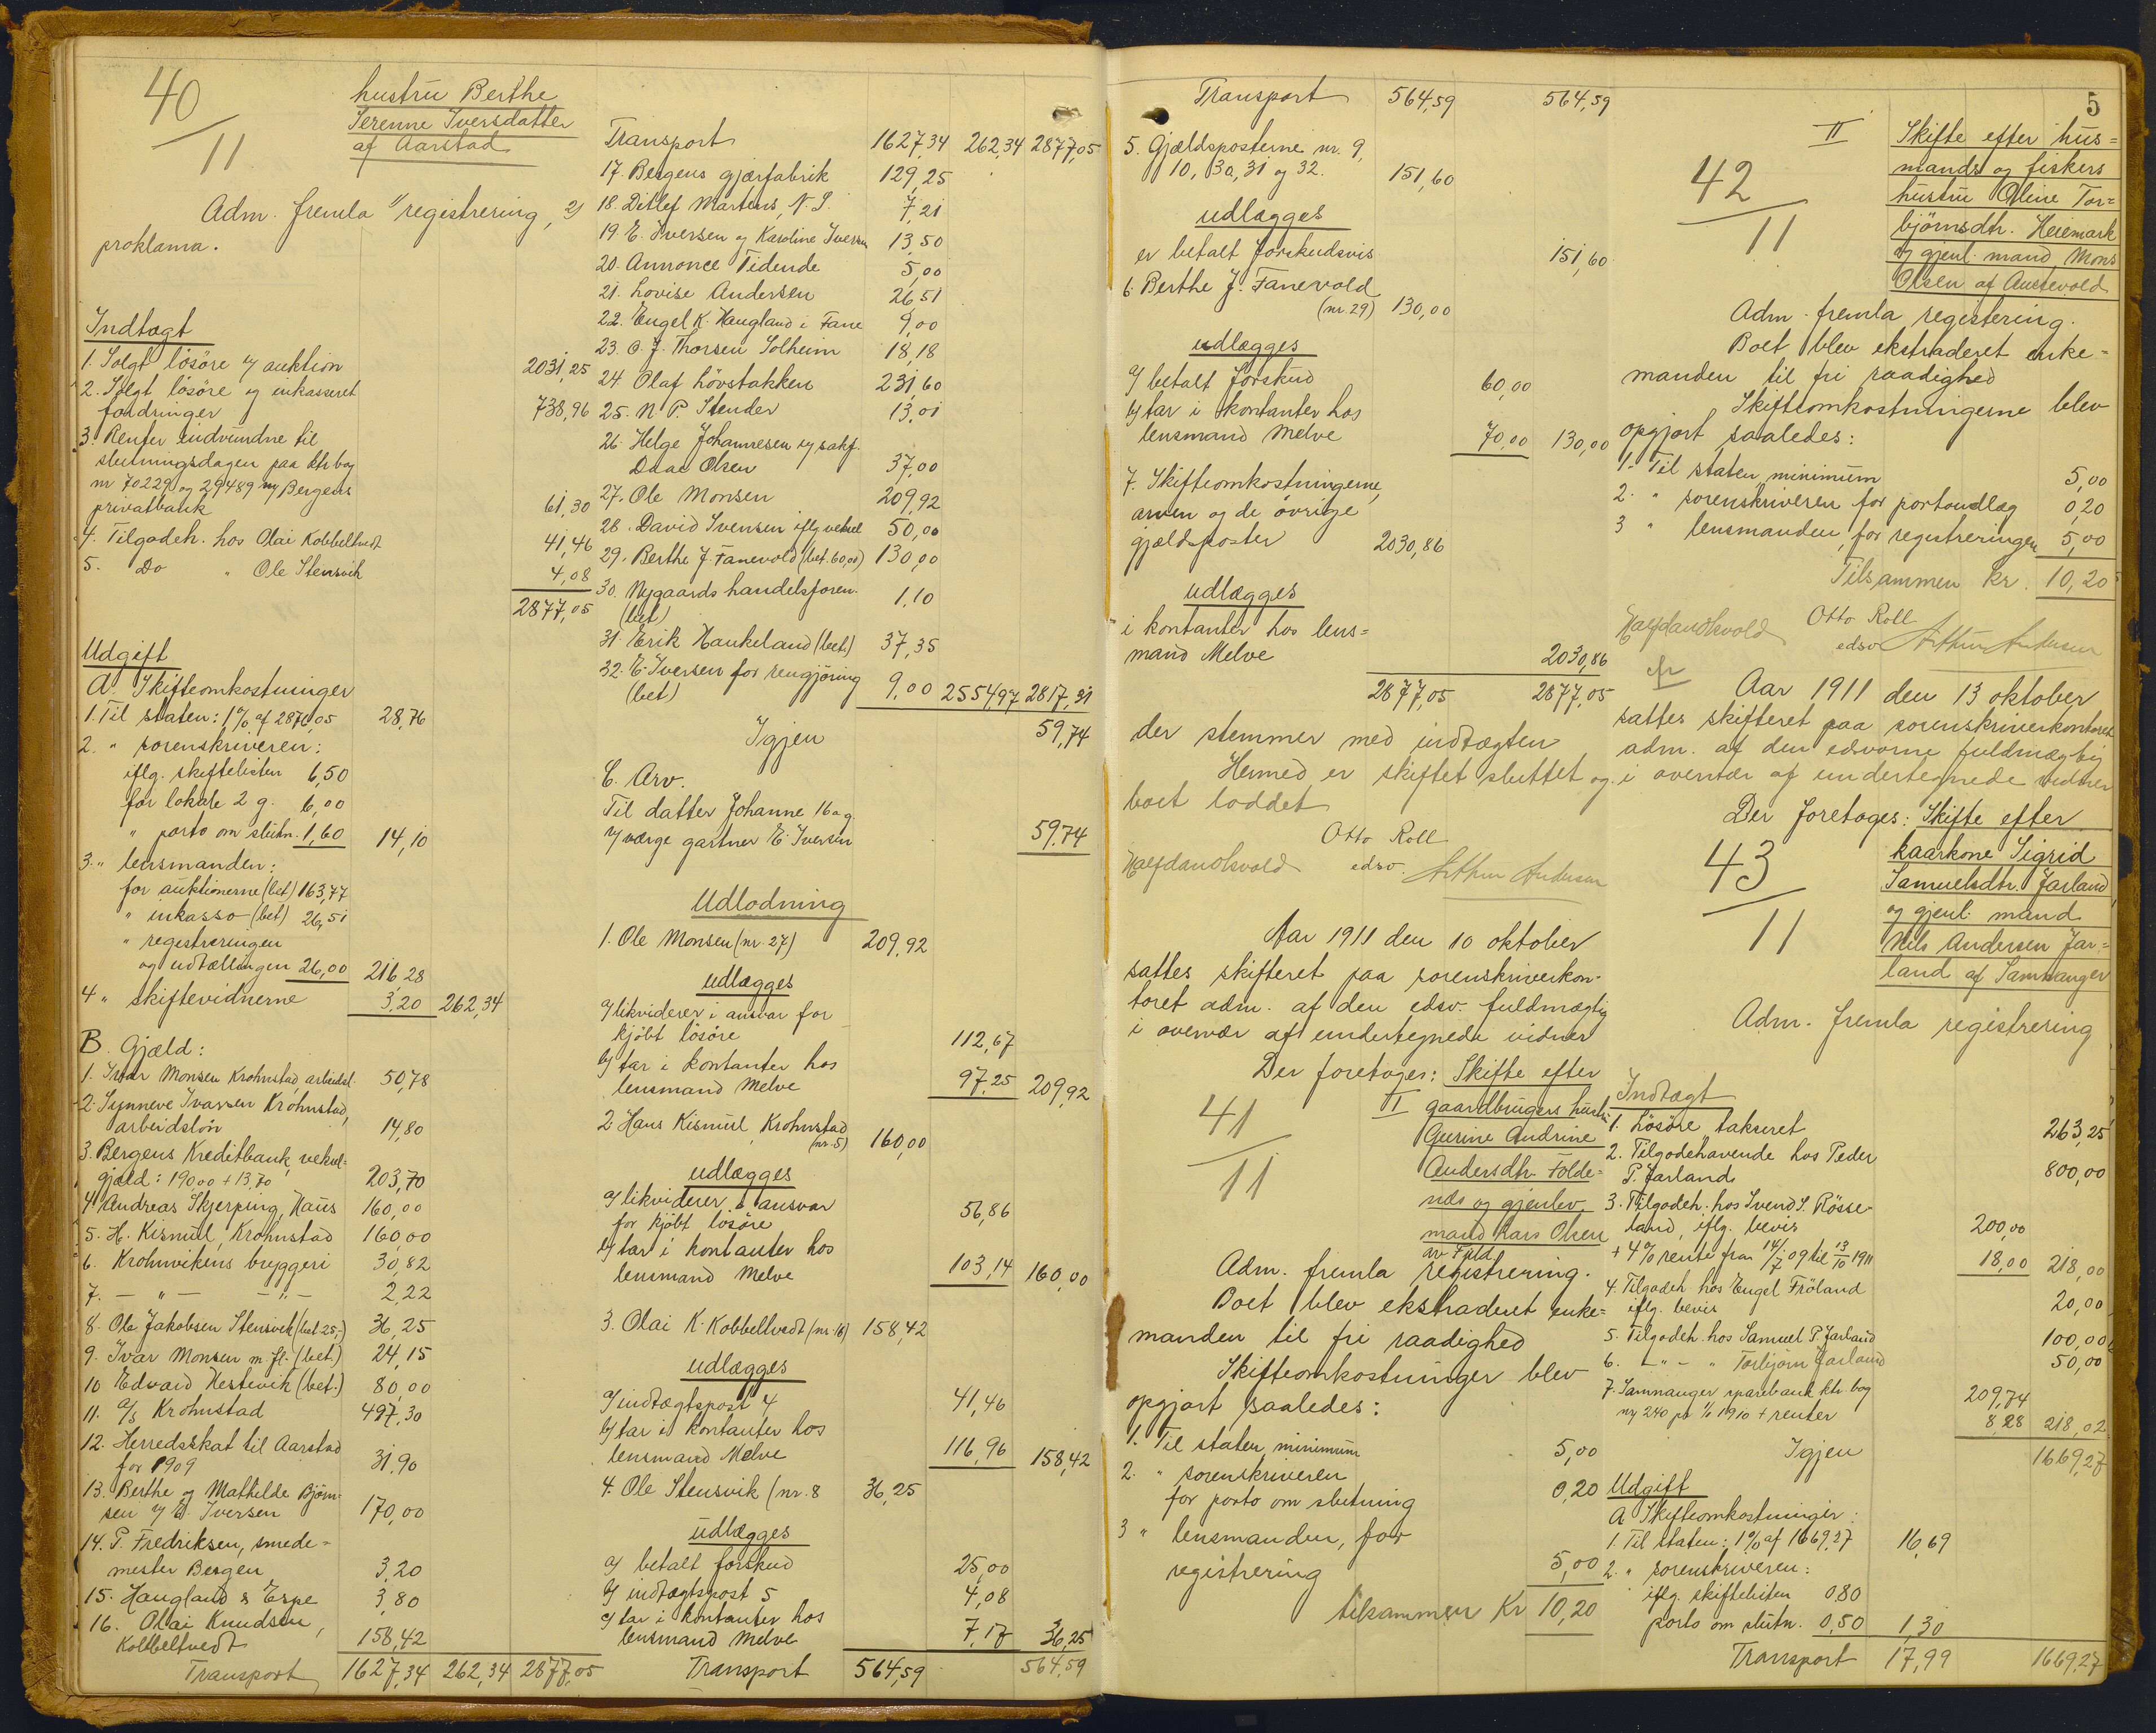 40
11
hustru Berthe
Serenne Iversdatter
af Aarstad
Adm. fremla 1/ registrering, 2/
proklama.
Indtægt
1. Solgt løsøre v/ auktion 2031,25
2. Solgt løsøre og inkasseret
fordringer 738,96
3. Renter indvundne til
slutningsdagen paa ktr bog
nr 70229 og 29489 Bergens
privatbank 61,30
4. Tilgodeh. hos Olai Kobbeltvedt 41,46
5. Do " Ole Stensvik 4,08
2877,05
Udgift
A. Skifteomkostninger
1. Til staten: 1% af 2876,05 28,76
2. " sorenskriveren:
iflg. skiftelisten 6,50
for lokale 2 g. 6,00
" porto om slutn. 1,60 14,10
3. " lensmanden:
for auktionerne (bet) 163,77
" inkasso (bet) 26,51
" registreringen
og udtællingen 26,00 216,28
4 " skiftevidnerne 3,20 262,34
B. Gjæld:
1. Ivar Monsen Krohnstad, arbeidsl. 50,78
2. Synneve Ivarsen Krohnstad,
arbeidsløn 14,80
3. Bergens Kreditbank, veksel-
gjæld: 190,00 + 13,70 203,70
4 Andreas Skjerping, Haus 160,00
5. H. Kismul, Krohnstad 160,00
6. Krohnvikens bryggeri 30,82
7. — " — — " — 2,22
8. Ole Jakobsen Stensvik (bet 25,-) 36,25
9. Ivar Monsen m. fl. (bet.) 24,15
10 Edvard Hestevik (bet.) 80,00
11. A/S Krohnstad 497,30
12. Herredsskat til Aarstad
for 1909 31,90
13. Berthe og Mathilde Bjørn-
sen v/ E. Iversen 170,00
14. P. Fredriksen, smede-
mester Bergen 3,20
15. Haugland & Espe 3,80
16. Olai Knudsen,
Kobbeltvedt 158,42
Transport 1627,34 262,34 2877,05
Transport 1627,34 262,34 2877,05
17. Bergens gjærfabrik 129,25
18. Ditlef Martens, N. S. 7,21
19. E. Iversen og Karoline Iversen 13,50
20. Annonce Tidende 5,00
21. Lovise Andersen 26,51
22. Engel K. Haugland i Fane 9,00
23. O. J. Thorsen Solheim 18,18
24. Olaf Løvstakken 231,60
25. N. P. Stender 13,01
26. Helge Johannesen v/ sakf.
Daae Olsen 37,00
27. Ole Monsen 209,92
28. David Svensen iflg veksel 50,00
29. Berthe J. Fanevold (bet. 60,00) 130,00
30. Nygaards handelsforen.
(bet) 1,10
31. Erik Haukeland (bet.) 37,35
32. E. Iversen for rengjøring
(bet) 9,00 2554,97 2817,31
Igjen 59,74
C. Arv.
Til datter Johanne 16 a g.
v/ værge gartner E. Iversen 59,74
Udlodning
1. Ole Monsen (nr. 27) 209,92
udlægges
a/ likviderer i ansvar for
kjøbt løsøre 112,67
b/ tar i kontanter hos
lensmand Melve 97,25 209,92
2. Hans Kismul, Krohnstad
(nr. 5) 160,00
udlægges
a/ likviderer i ansvar
for kjøbt løsøre 56,86
b/ tar i kontanter hos
lensmand Melve 103,14 160,00
3. Olai K. Kobbeltvedt (nr. 16) 158,42
udlægges
a/ indtægtspost 4 41,46
b/ tar i kontanter hos
lensmand Melve 116,96 158,42
4. Ole Stensvik (nr. 8 36,25
udlægges
a/ betalt forskud 25,00
b/ indtægtspost 5 4,08
c/ tar i kontanter hos
lensmand Melve 7,17 36,25
Transport 564,59 564,59
Transport 564,59 564,59
5. Gjældsposterne nr. 9,
10, 30, 31 og 32. 151,60
udlægges
er betalt forskudsvis 151,60
6. Berthe J. Fanevold
(nr. 29) 130,00
udlægges
a/ betalt forskud 60,00
b/ tar i kontanter hos
lensmand Melve 70,00 130,00
7. Skifteomkostningerne,
arven og de øvrige
gjældsposter 2030,86
udlægges
i kontanter hos lens=
mand Melve 2030,86
2877,05 2877,05
der stemmer med indtægten
Hermed er skiftet sluttet og
boet loddet
Otto Roll
edsv.
Halfdan Olsvold Arthur Andersen
Aar 1911 den 10 oktober
sattes skifteret paa sorenskriverkon-
toret adm. af den edsv. fuldmægtig
i overvær af undertegnede vidner
Der foretoges: Skifte efter
41
11
I gaardbrugers hustru
Gurine Andrine
Andersdtr. Folde=
næs og gjenlev.
mand Lars Olsen
Adm. fremla registrering.
Boet blev ekstraderet enke=
manden til fri raadighed
Skifteomkostninger blev
opgjort saaledes:
1. Til staten minimum 5,00
2. " sorenskriveren
for porto om slutning 0,20
3 " lensmanden, for
registrering 5,00
tilsammen Kr 10,20
5
42
11
II
Skifte efter hus=
mands og fiskers
hustru Oline Tor=
bjørnsdtr. Heiemark
og gjenl. mand Mons
Olsen af Austevold
Adm. fremla registering.
Boet blev ekstraderet enke=
manden til fri raadighed
Skifteomkostningerne blev
opgjort saaledes:
1. Til staten minimum 5,00
2. " sorenskriveren for portoudlæg 0,20
3 " lensmanden, for registreringen 5,00
Tilsammen kr. 10,20
Otto Roll
edsv
Halfdan Olsvold Arthur Andersen
Aar 1911 den 13 oktober
sattes skifteret paa sorenskriverkontoret
adm. af den edsvorne fuldmægtig
i overvær af undertegnede vidner
Der foretoges: Skifte efter
43
11
kaarkone Sigrid
Samuelsdtr. Jarland
og gjenl. mand
Nils Andersen Jar=
land af Samnanger
Adm. fremla registrering
Indtægt
1. Løsøre takseret 263,25
2. Tilgodehavende hos Peder
P. Jarland 800,00
3. Tilgodeh. hos Svend S. Røsse-
land, iflg. bevis 200,00
+ 4% rente fra 14/7 09 til 13/10 1911 18,00 218,00
4. Tilgodeh hos Engel Frøland
iflg. bevis 20,00
5. Tilgodeh. hos Samuel P. Jarland 100,00
6. — " — " Torbjørn Jarland 50,00
7. Samnanger sparebank ktr. bog 209,74
nr 240 pr 1/1 1910 + renter 8,28 218,02
Igjen 1669,27
Udgift
A Skifteomkostninger:
1. Til staten: 1% af 1669,27 16,69
2. " sorenskriveren:
iflg. skiftelisten 0,80
porto om slutn. 0,50 1,30
Transport 17,99 1669,27